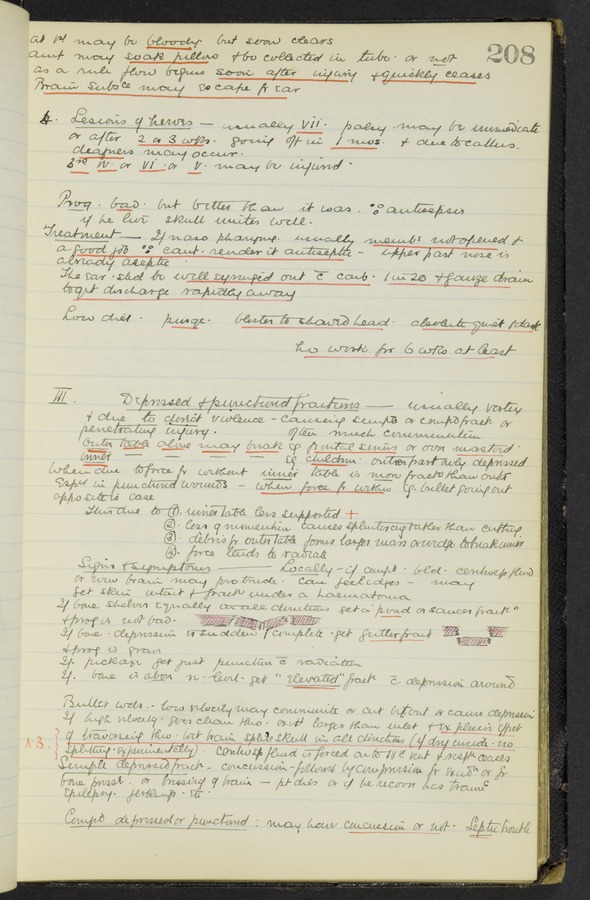 208
at 1st may be bloody but soon clears
amt may soak pillow & be collected in tube or not
as a rule flow begins soon after injury & quickly ceases
Brain subce may escape fr ear
4. Lesions of nerves — usually VII. palsy may be immediate
or after 2 or 3 wks. going off in 1 mos. & due to callus.
deafness may occur.
3rd IV. or VI. or V. may be injured.
Prog. bad. but better than it was. ∵ antisepsis
if he live skull unites well.
Treatment — If naso pharynx. usually membs not opened &
a good job ∵ cant render it antiseptic — upper part nose is
already aseptic.
The ear shd be well syringed out c̄ carb. 1 in 20 & gauze drain
to get discharge rapidly away
Low diet. purge. blister to shaved head. absolute quiet & dark
No work for 6 wks at least
III. Depressed & punctured fractures — usually vertex
& due to direct violence - causing simple or compd fract or
penetrating injury. often much comminution
outer table alone may break eg frontal sinus or over mastoid.
inner — — — — eg children. outer part only depressed
When due to force fr without inner table is more fractd than outer
esply in punctured wounds — when force fr within eg bullet going out
opposite is case
This due to ①. inner table less supported +
②. loss of momentum causes splintering rather than cutting
③. debris fr outer table forms larger mass or wedge to break inner
④. force tends to radiate
Signs & symptoms — Locally - if compd. bld. cerebrosp fluid
or even brain may protrude. can feel edges - may
get skin intact & fract under a haematoma
If bone shelves equally in all directions get a pond or saucer fract"
& prog is not bad.
If bone depression is sudden & complete get gutter fract
& prog is grave
If pickaxe get just puncture c̄ radiation
If bone is above n. level. get "elevated" fract c̄ depression around
Bullet wds. - low velocity may comminute or cut bit out or cause depression
If high velocity. goes clean thro. exit larger than inlet & explosive effect
N.B. of traversing thro. wet brain splits skull in all directions (if dry inside. no
splitting - experimentally) cerebrosp fluid is forced into IVth vent & respn ceases
Simple depressed fract. - concussion - followed by compression fr exudn or fr
bone press. or bruising of brain — pt dies or if he recover has traumc
epilepsy. etc.
Compd depressed or punctured: may have concussion or not. Septic trouble